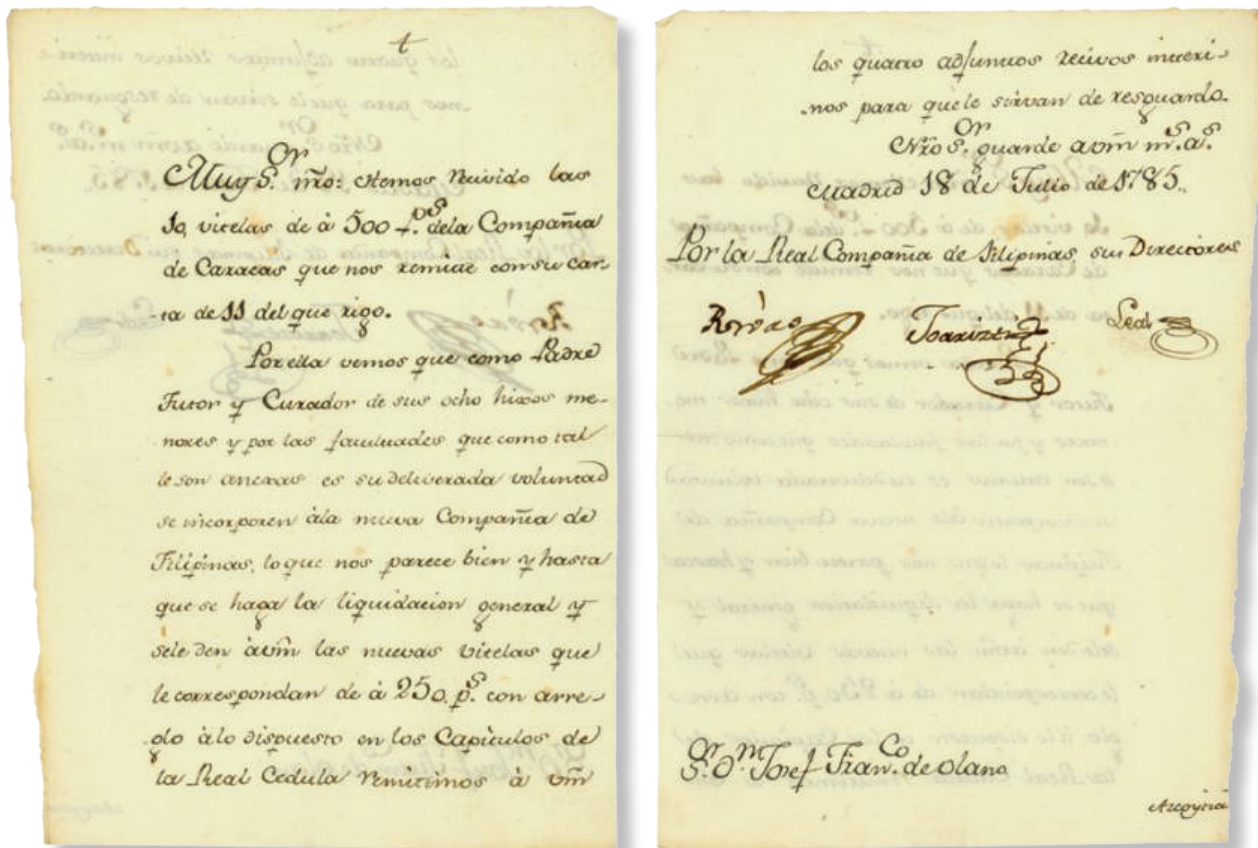 Muy S.or mío: Hemos recivido las
10, vitelas de à 500 p.s de la Compañia
de Caracas que nos remite con su car-
-ta de 11 del que rigo.
Por ella vemos que como Padre
Tutor y Curador de sus ocho hixos me-
nores y por las facultades que como tal
le son anexas es su deliverada voluntad
se incorporen àla nueva Compañia de
Filipinas, lo que nos parece bien y hasta
que se haga la liquidacion general y
sele den àvm las nuevas vitelas que
le correspondan de à 250. p.s con arre-
glo àlo dispuesto en los Capitulos de
la Real Cedula remitimos à vm
los quatro adjuntos recivos interi-
-nos para que le sirvan de resguardo.
Nro S.or guarde avm m.s a.s
Madrid 18 de Julio de 1785.
Por la Real Compañia de Filipinas, sus Directores
Leal
S.or D.n Josef Fran.co de Olano
Azcoytia